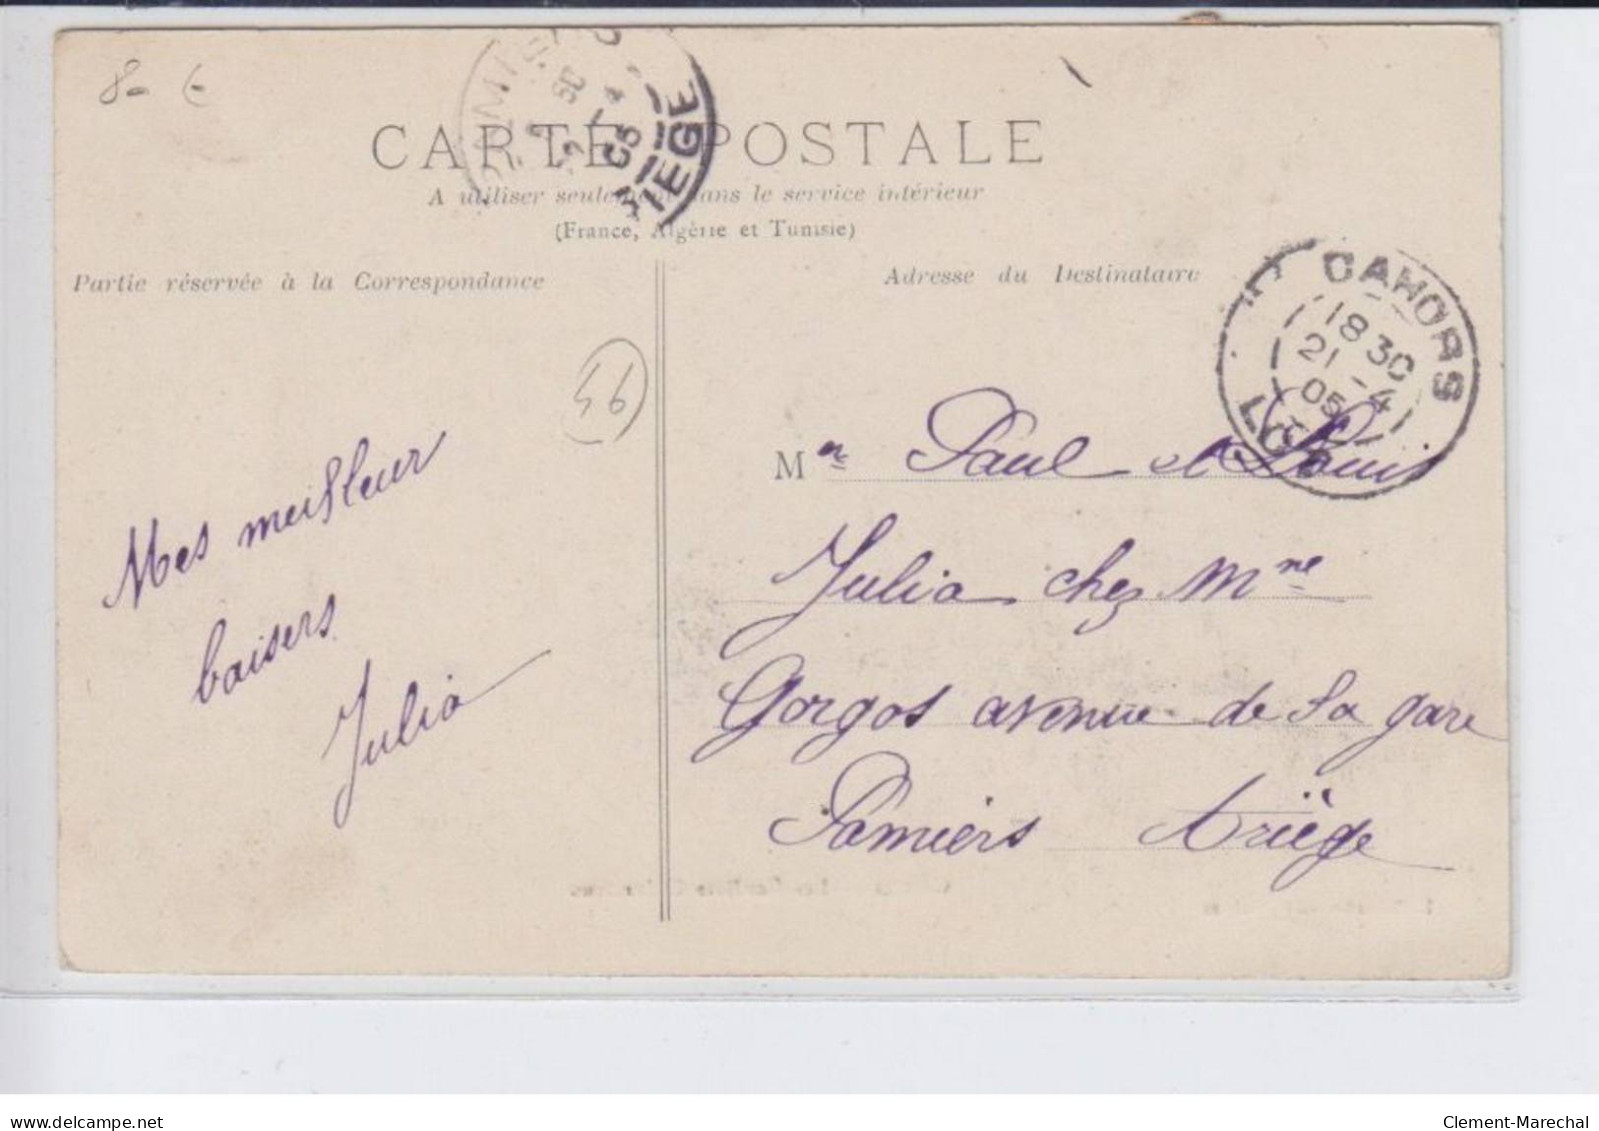 8- €
CARTE POSTALE
A utiliser seulement dans le service intérieur
(France, Algérie et Tunisie)
Partie réservée à la Correspondance
Adresse du Destinataire
CAHORS
18 30
21 - 4
05
LOT
46
IEGE
Mes meilleur
baisers
Julia
Mrs Paul et Louis
Julia chez Mme
Gorgos avenue de la gare
Pamiers Ariège
delcampe.net
Clement-Marechal